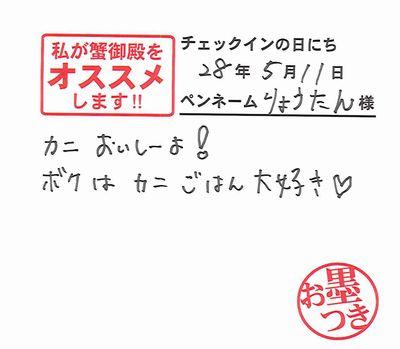 私が蟹御殿を
オススメ
します!!
チェックインの日にち
28年5月11日
ペンネーム りょうたん 様
カニ おいしーよ!
ボクは カニ ごはん 大好き♡
お墨つき